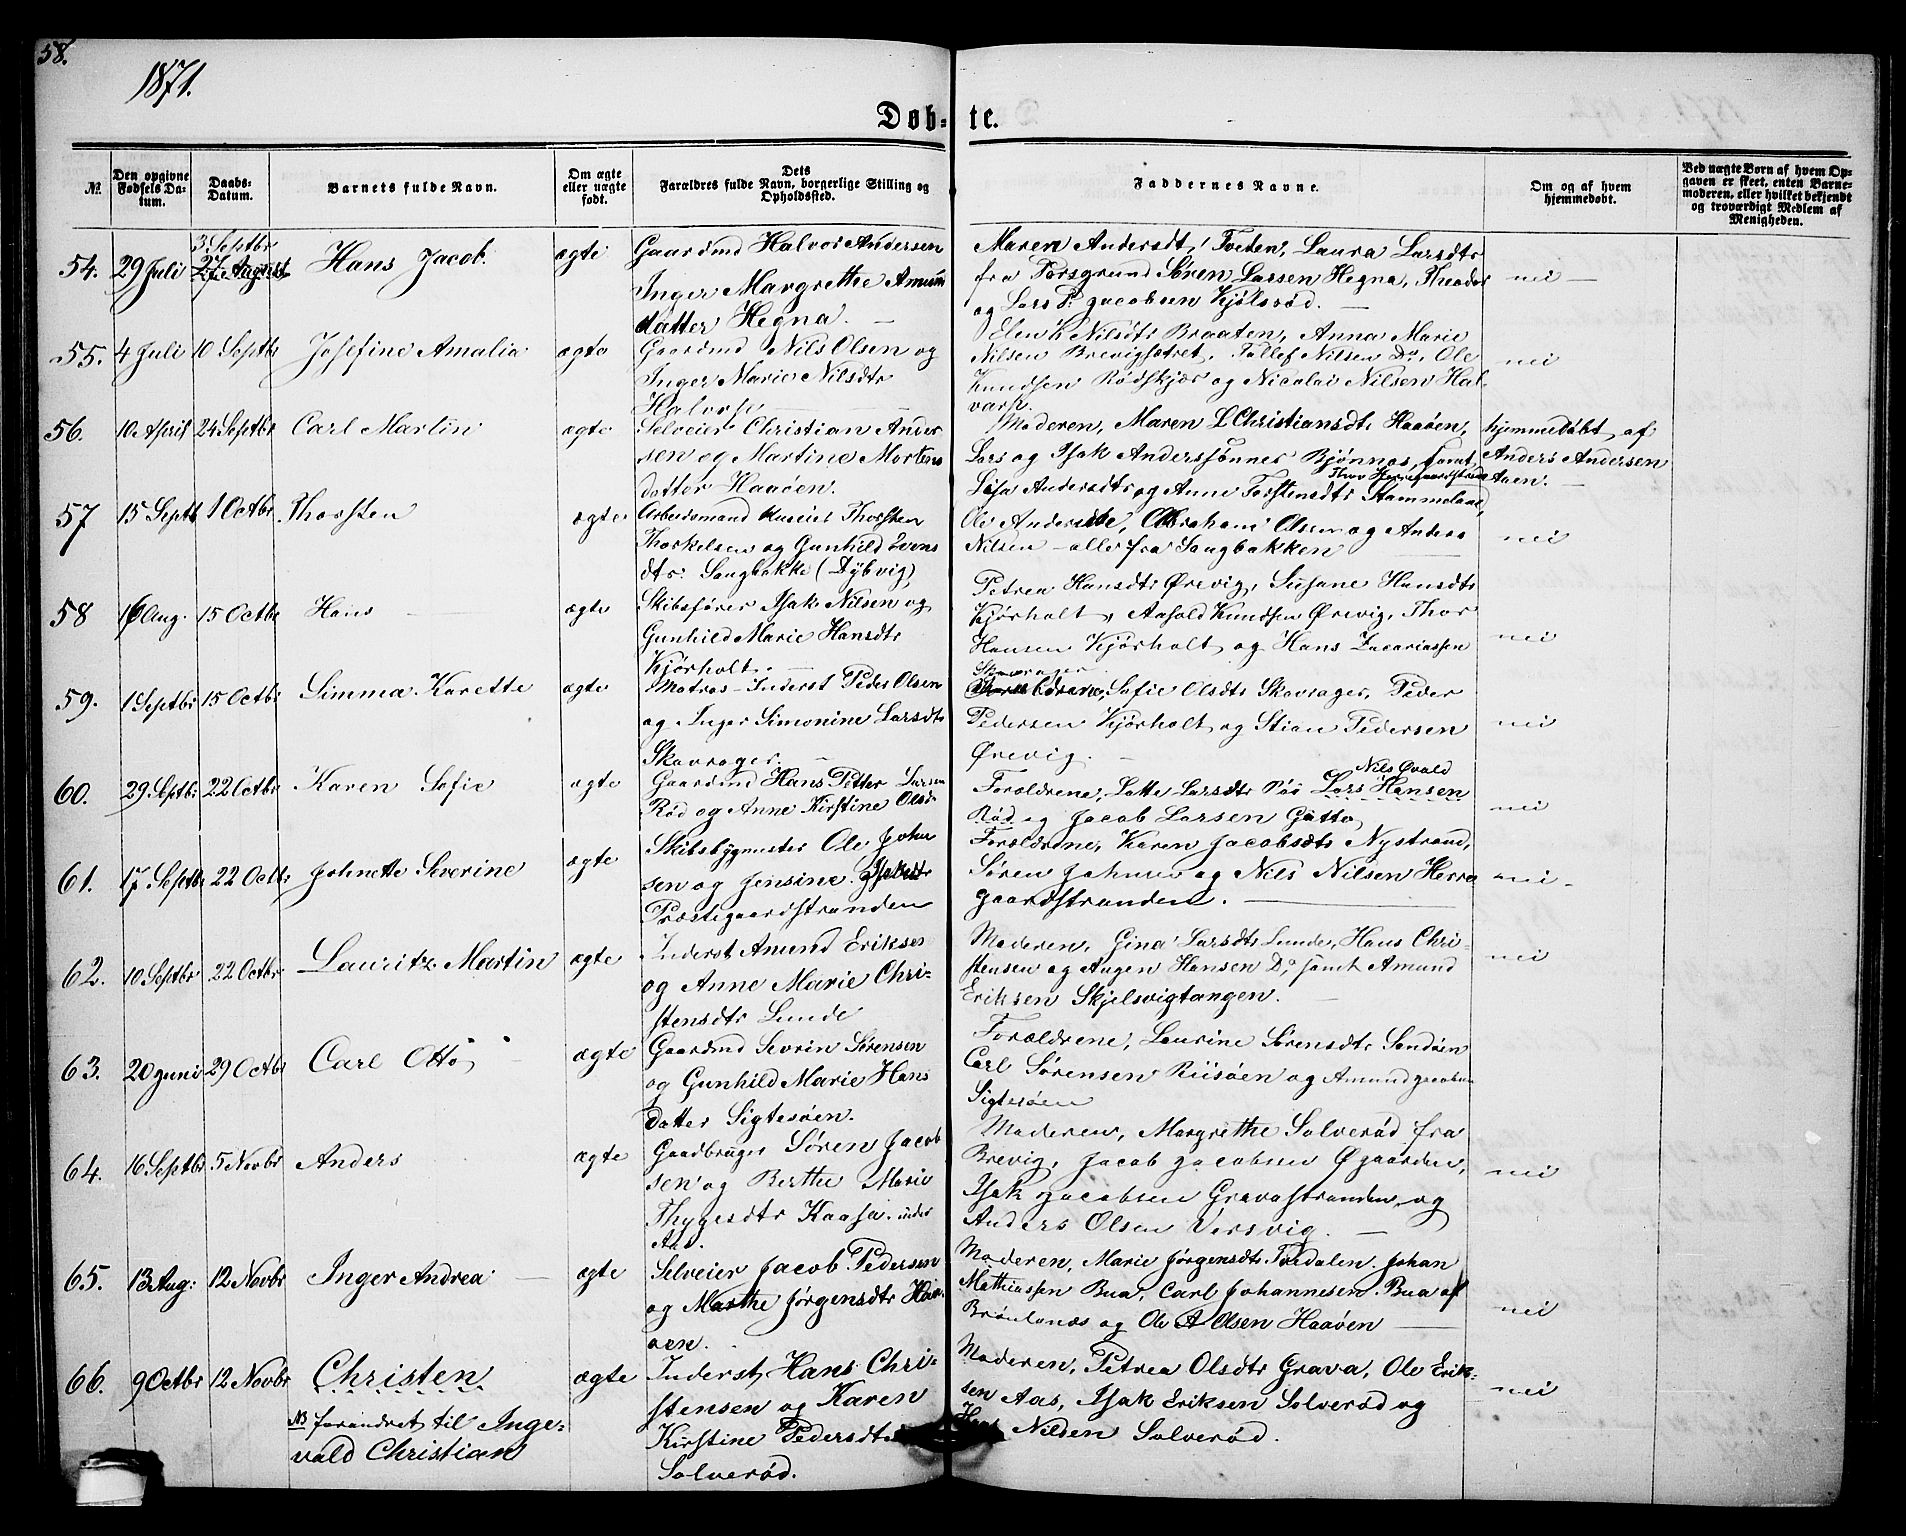 58.
1871.
Døbte.
No.
Den opgivne Fødsels Datum.
Daabs-Datum.
Barnets fulde Navn.
Om ægte eller uægte født.
Dets Forældres fulde Navn, borgerlige Stilling og Opholdssted.
Faddernes Navne.
Om og af hvem hjemmedøbt.
Ved uægte Børn af hvem Opgaven er skeet, enten Barnemoderen, eller hvilket bekjendt og troværdigt Medlem af Menigheden.
54. 29 Juli 3 Septbr 27 August Hans Jacob. ægte
Gaardmd Halvor Andersen
Inger Margrethe Amunds
datter Hegna. —
Maren Andersdt, Tveten, Laura Larsdtr
fra Porsgrund Søren Larsen Hegna, Theodor
og Lars P. Jacobsen Kjølsrød. —
nei —
55. 4 Juli 10 Septbr Josefine Amalia ægte
Gaardmd Nils Olsen og
Inger Marie Nilsdtr
Halvarp
Elen K Nilsdtr Braaten, Anna Marie
Nilsen Brevigsætret, Tollef Nilsen Do, Ole
Knudsen Rødskjær og Nicolai Nilsen Hal-
varp.
nei
56. 10 April 24 Septbr Carl Martin ægte
Selveier Christian Ander
sen og Martine Mortens
datter Haaøen.
Moderen, Maren L Christiansdtr Haaøen,
Lars og Isak Anderssønner Bjønnes, samt
hjemmedøbt af
Anders Andersen
Aaen. —
57 15 Septb 1 Octbr Thorsten ægte
Arbeidsmand Thorsten
Thorkelsen og Gunhild Evens
dtr: Saugbakke (Dybvig)
Lisa Andersdtr og Anne Torstensdtr
Ole Andersen, Abraham Olsen og Anders
Nilsen — alle fra Saugbakken
nei
58 16 Aug. 15 Octbr Hans ægte
Skibsfører Isak Nilsen og
Gunhild Marie Hansdtr
Kjørholt. —
Petrea Hansdtr Ørevig, Susane Hansdtr
Kjørholt, Aasold Knudsen Ørevig, Thor
Hansen Kjørholt og Hans Zacariassen
Skavrager
nei
59. 1 Septbr 15 Octbr Simma Karette ægte
Matros-Inderst Peder Olsen
og Inger Simonine Larsdtr
Skavrager. —
Forældrene, Sofie Olsdtr Skavrager, Peder
Pedersen Kjørholt og Stian Pedersen
Ørevig. —
nei
60. 29 Septbr 22 Octbr Karen Sofie ægte
Gaardmd Hans Petter Larsen
Rød og Anne Kirstine Olsd
Nils Øvald
Forældrene, Lotte Larsdtr Lars Hansen
Rød og Jacob Larsen Gåtto
nei
61. 17 Septbr 22 Octbr Johnette Severine ægte
Skibsbygmester Ole John
sen og Jensine Isaksdtr
Præstegaardstranden
Forældrene, Karen Jacobsdtr Nystrand,
Søren Johnsen og Nils Nilsen Herre
gaardstranden. —
nei —
62. 10 Septbr 22 Octbr Lauritz Martin ægte
Inderst Amund Eriksen
og Anne Marie Chri-
stensdtr Lunde
Moderen, Gina Larsdtr Lunde, Hans Chri-
stensen og Augen Hansen Do, samt Amund
Eriksen Skjelsvigtangen. —
nei
63. 20 Juni 29 Octbr Carl Otto — ægte
Gaardmd Sevrin Sørensen
og Gunhild Marie Hans
datter Sigtesøen.
Forældrene, Laurine Sørensdtr Sandøen
Carl Sørensen Riisøen og Amund Jacobsen
Sigtesøen
64. 16 Septbr 5 Novbr Anders ægte
Gaardbruger Søren Jacob
sen og Berthe Marie
Thygesdtr Kaasa under
Aas.
Moderen, Margrethe Solverød fra
Brevig, Jacob Jacobsen Øgaarden,
Isak Jacobsen Gravastranden og
Anders Olsen Versvig. —
nei
65. 13 Aug: 12 Novbr Inger Andrea — ægte
Selveier Jacob Pedersen
og Marthe Jørgensdtr Haa
øen.
Moderen, Marie Jørgensdtr Tvedalen. Johan
Mathiassen Bua, Carl Johannesen Bua af
Brunlanæs og Ole A Olsen Haaøen —
nei
66. 9 Octbr 12 Novbr Christen ægte
NB forandret til Inge-
vald Christian
Inderst, Hans Chri-
stensen og Karen
Kirstine Pedersdtr
Solverød.
Moderen, Petrea Olsdtr Grava, Ole Erik-
sen Aas, Isak Eriksen Solverød og
Nilsen Solverød.
nei